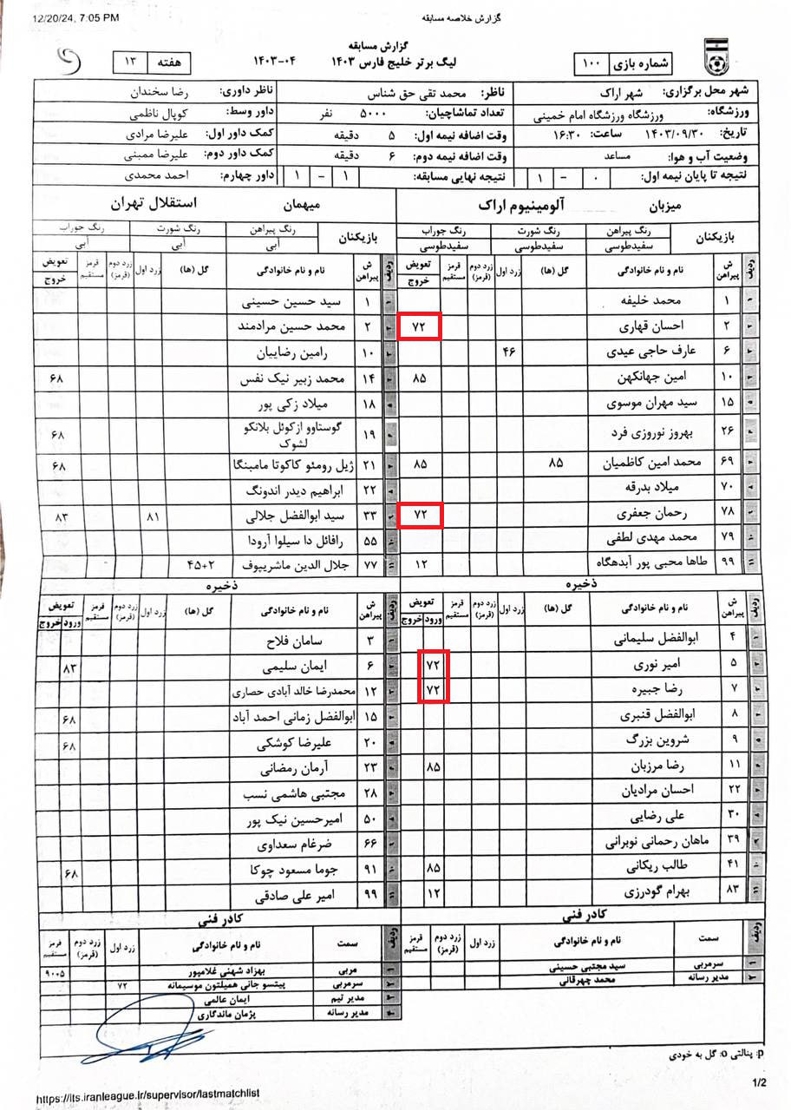 12/20/24, 7:05 PM
گزارش خلاصه مسابقه
گزارش مسابقه
شماره بازی ۱۰۰
لیگ برتر خلیج فارس ۱۴۰۳
۱۴۰۳-۰۴
هفته ۱۳
شهر محل برگزاری: شهر اراک
ناظر: محمد تقی حق شناس
ناظر داوری: رضا سخندان
ورزشگاه: ورزشگاه امام خمینی
تعداد تماشاچیان: ۵۰۰۰ نفر
داور وسط: کوپال ناظمی
تاریخ: ۱۴۰۳/۰۹/۳۰ ساعت: ۱۶:۳۰
وقت اضافه نیمه اول: ۵ دقیقه
کمک داور اول: علیرضا مرادی
وضعیت آب و هوا: مساعد
وقت اضافه نیمه دوم: ۶ دقیقه
کمک داور دوم: علیرضا ممبنی
نتیجه تا پایان نیمه اول: ۰ - ۱
نتیجه نهایی مسابقه: ۱ - ۱
داور چهارم: احمد محمدی
میزبان آلومینیوم اراک
بازیکنان رنگ پیراهن رنگ شورت رنگ جوراب
سفیدطوسی سفیدطوسی سفیدطوسی
ردیف ش پیراهن نام و نام خانوادگی گل (ها) زرد اول زرد دوم (قرمز) قرمز مستقیم تعویض خروج
۱ محمد خلیفه
۲ احسان قهاری ۷۲
۶ عارف حاجی عیدی ۴۶
۱۰ امین جهانکهن ۸۵
۱۵ سید مهران موسوی
۲۶ بهروز نوروزی فرد
۶۹ محمد امین کاظمیان ۸۵ ۸۵
۷۰ میلاد بدرقه
۷۸ رحمان جعفری ۷۲
۷۹ محمد مهدی لطفی
۹۹ طاها محبی پور آبدهگاه ۱۲
ذخیره
ردیف ش پیراهن نام و نام خانوادگی گل (ها) زرد اول زرد دوم (قرمز) قرمز مستقیم تعویض ورود خروج
۴ ابوالفضل سلیمانی
۵ امیر نوری ۷۲
۷ رضا جبیره ۷۲
۸ ابوالفضل قنبری
۹ شروین بزرگ
۱۱ رضا مرزبان ۸۵
۲۲ احسان مرادیان
۳۰ علی رضایی
۳۹ ماهان رحمانی نوبرانی
۴۱ طالب ریکانی ۸۵
۸۳ بهرام گودرزی ۱۲
کادر فنی
ردیف سمت نام و نام خانوادگی زرد اول زرد دوم (قرمز) قرمز مستقیم
۱ سرمربی سید مجتبی حسینی
۲ مدیر رسانه محمد چهرقانی
میهمان استقلال تهران
بازیکنان رنگ پیراهن رنگ شورت رنگ جوراب
آبی آبی آبی
ردیف ش پیراهن نام و نام خانوادگی گل (ها) زرد اول زرد دوم (قرمز) قرمز مستقیم تعویض خروج
۱ سید حسین حسینی
۲ محمد حسین مرادمند
۱۰ رامین رضاییان
۱۴ محمد زبیر نیک نفس ۶۸
۱۸ میلاد زکی پور
۱۹ گوستاوو ازکوئل بلانکو لشوک ۶۸
۲۱ ژیل رومئو کاکوتا مامبنگا ۶۸
۲۲ ابراهیم دیدر اندونگ
۳۳ سید ابوالفضل جلالی ۸۱ ۸۳
۵۵ رافائل دا سیلوا آرودا
۷۷ جلال الدین ماشریپوف ۴۵+۲
ذخیره
ردیف ش پیراهن نام و نام خانوادگی گل (ها) زرد اول زرد دوم (قرمز) قرمز مستقیم تعویض ورود خروج
۳ سامان فلاح
۶ ایمان سلیمی ۸۳
۱۲ محمدرضا خالد آبادی حصاری
۱۵ ابوالفضل زمانی احمد آباد ۶۸
۲۰ علیرضا کوشکی ۶۸
۲۳ آرمان رمضانی
۲۸ مجتبی هاشمی نسب
۵۰ امیرحسین نیک پور
۶۶ ضرغام سعداوی
۹۱ جوما مسعود چوکا ۶۸
۹۹ امیر علی صادقی
کادر فنی
ردیف سمت نام و نام خانوادگی زرد اول زرد دوم (قرمز) قرمز مستقیم
۱ مربی بهزاد شهنی غلامپور ۹۰+۵
۲ سرمربی پیتسو جانی همیلتون موسیمانه ۷۲
۳ مدیر تیم ایمان عالمی
۴ مدیر رسانه پژمان ماندگاری
p: پنالتی o: گل به خودی
https://its.iranleague.ir/supervisor/lastmatchlist
1/2